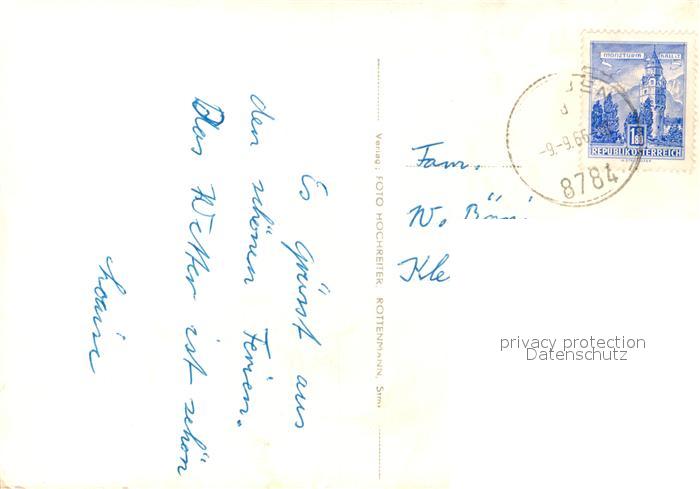 Es grüsst aus
den schönen Ferien.
Das Wetter ist schön
Verlag: FOTO HOCHREITER, ROTTENMANN, Stmk
MÜNZTURM HALL i.T.
1.80
REPUBLIK ÖSTERREICH
-9.-9.66
8784
Fam.
W.
Kle
privacy protection
Datenschutz